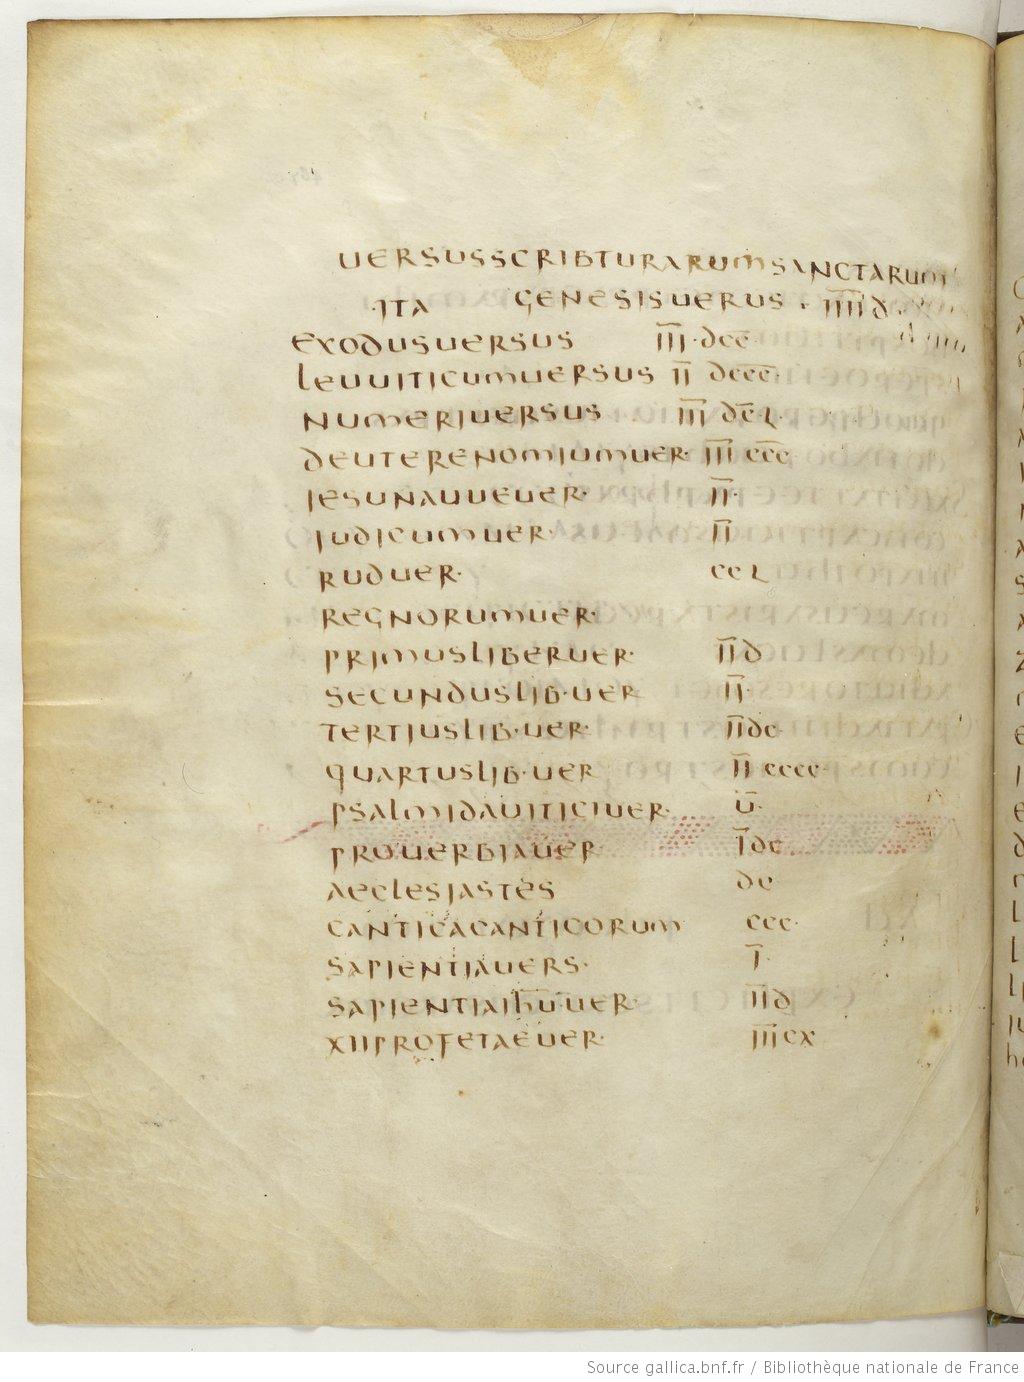 UERSUSSCRIBTURARUMSANCTARUM
ITA GENESISUERUS · I̅I̅I̅I̅d
EXODUSUERSUS I̅I̅I̅·dcc
LEUUITICUMUERSUS I̅I̅ dccc
NUMERIUERSUS I̅I̅I̅ dcl·
DEUTERENOMIUMUER· I̅I̅I̅ ccc
IESUNAUUEUER· I̅I̅·
IUDICUMUER· I̅I̅
RUDUER· ccl
REGNORUMUER·
PRIMUSLIBERUER· I̅I̅d
SECUNDUSLIB·UER I̅I̅·
TERTIUSLIB·UER· I̅I̅dc
QUARTUSLIB·UER I̅I̅ cccc·
PSALMIDAUITICIUER· U̅·
PROUERBIAUER I̅dc
AECLESIASTES dc
CANTICACANTICORUM ccc·
SAPIENTIAUERS· I̅·
SAPIENTIAIH̅U̅·UER· I̅I̅d
XIIPROFETAEUER· I̅I̅I̅cx
Source gallica.bnf.fr / Bibliothèque nationale de France